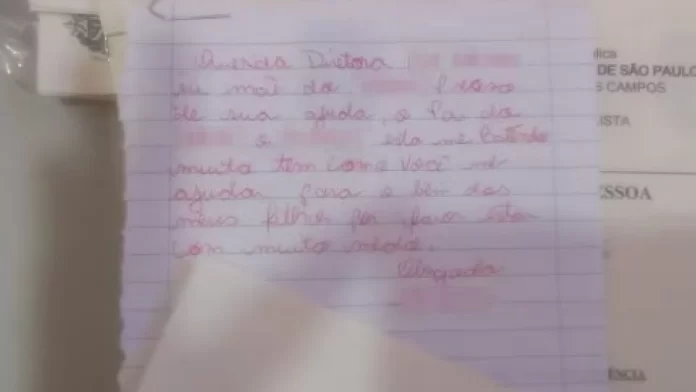 Querida Diretora
eu mãe da Preciso
de sua ajuda, o Pai da
e esta me Batendo
muito tem como você me
ajudar para o bem dos
meus filhos por favor estou
com muito medo.
Obrigada
lica
DE SÃO PAULO
S CAMPOS
ISTA
SSOA
ÊNCIA